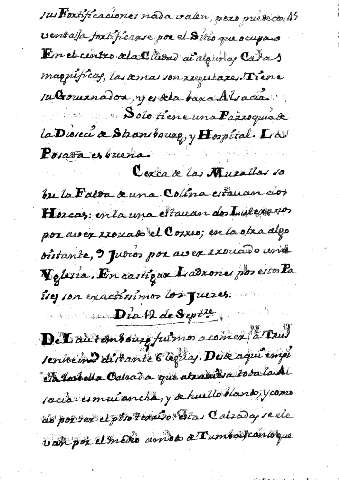 sus Fortificaciones nada valen, pero puede con 45
ventaja fortificarse por el Sitio que ocupa.
En el centro de la Ciudad ai algunas Casas
magnificas, las demas son regulares. Tiene
su Governador, y es de la baxa Alsacia.
Solo tiene una Parroquia de
la Diosecis de Stransbourg, y Hospital. La
Posada es buena.
Cerca de las Murallas so
bre la Falda de una Colina estauan dos
Horcas: en la una estauan dos Luteranos
por aver rrovado el Correo; en la otra algo
distante, 9 Judios por aver rrovado una
Yglesia. En castigar Ladrones por estos Pa
ises son exactissimos los Jueces.
Dia 12 de Septre.
De fuimos a comer a
distante 6 leguas. Desde aqui empi
eza la bella Calzada que atraviesa toda la Al
sacia es mui ancha, y de huello blando, y como
por ser el piso estas Calzadas se ele
van por el medio a modo de que